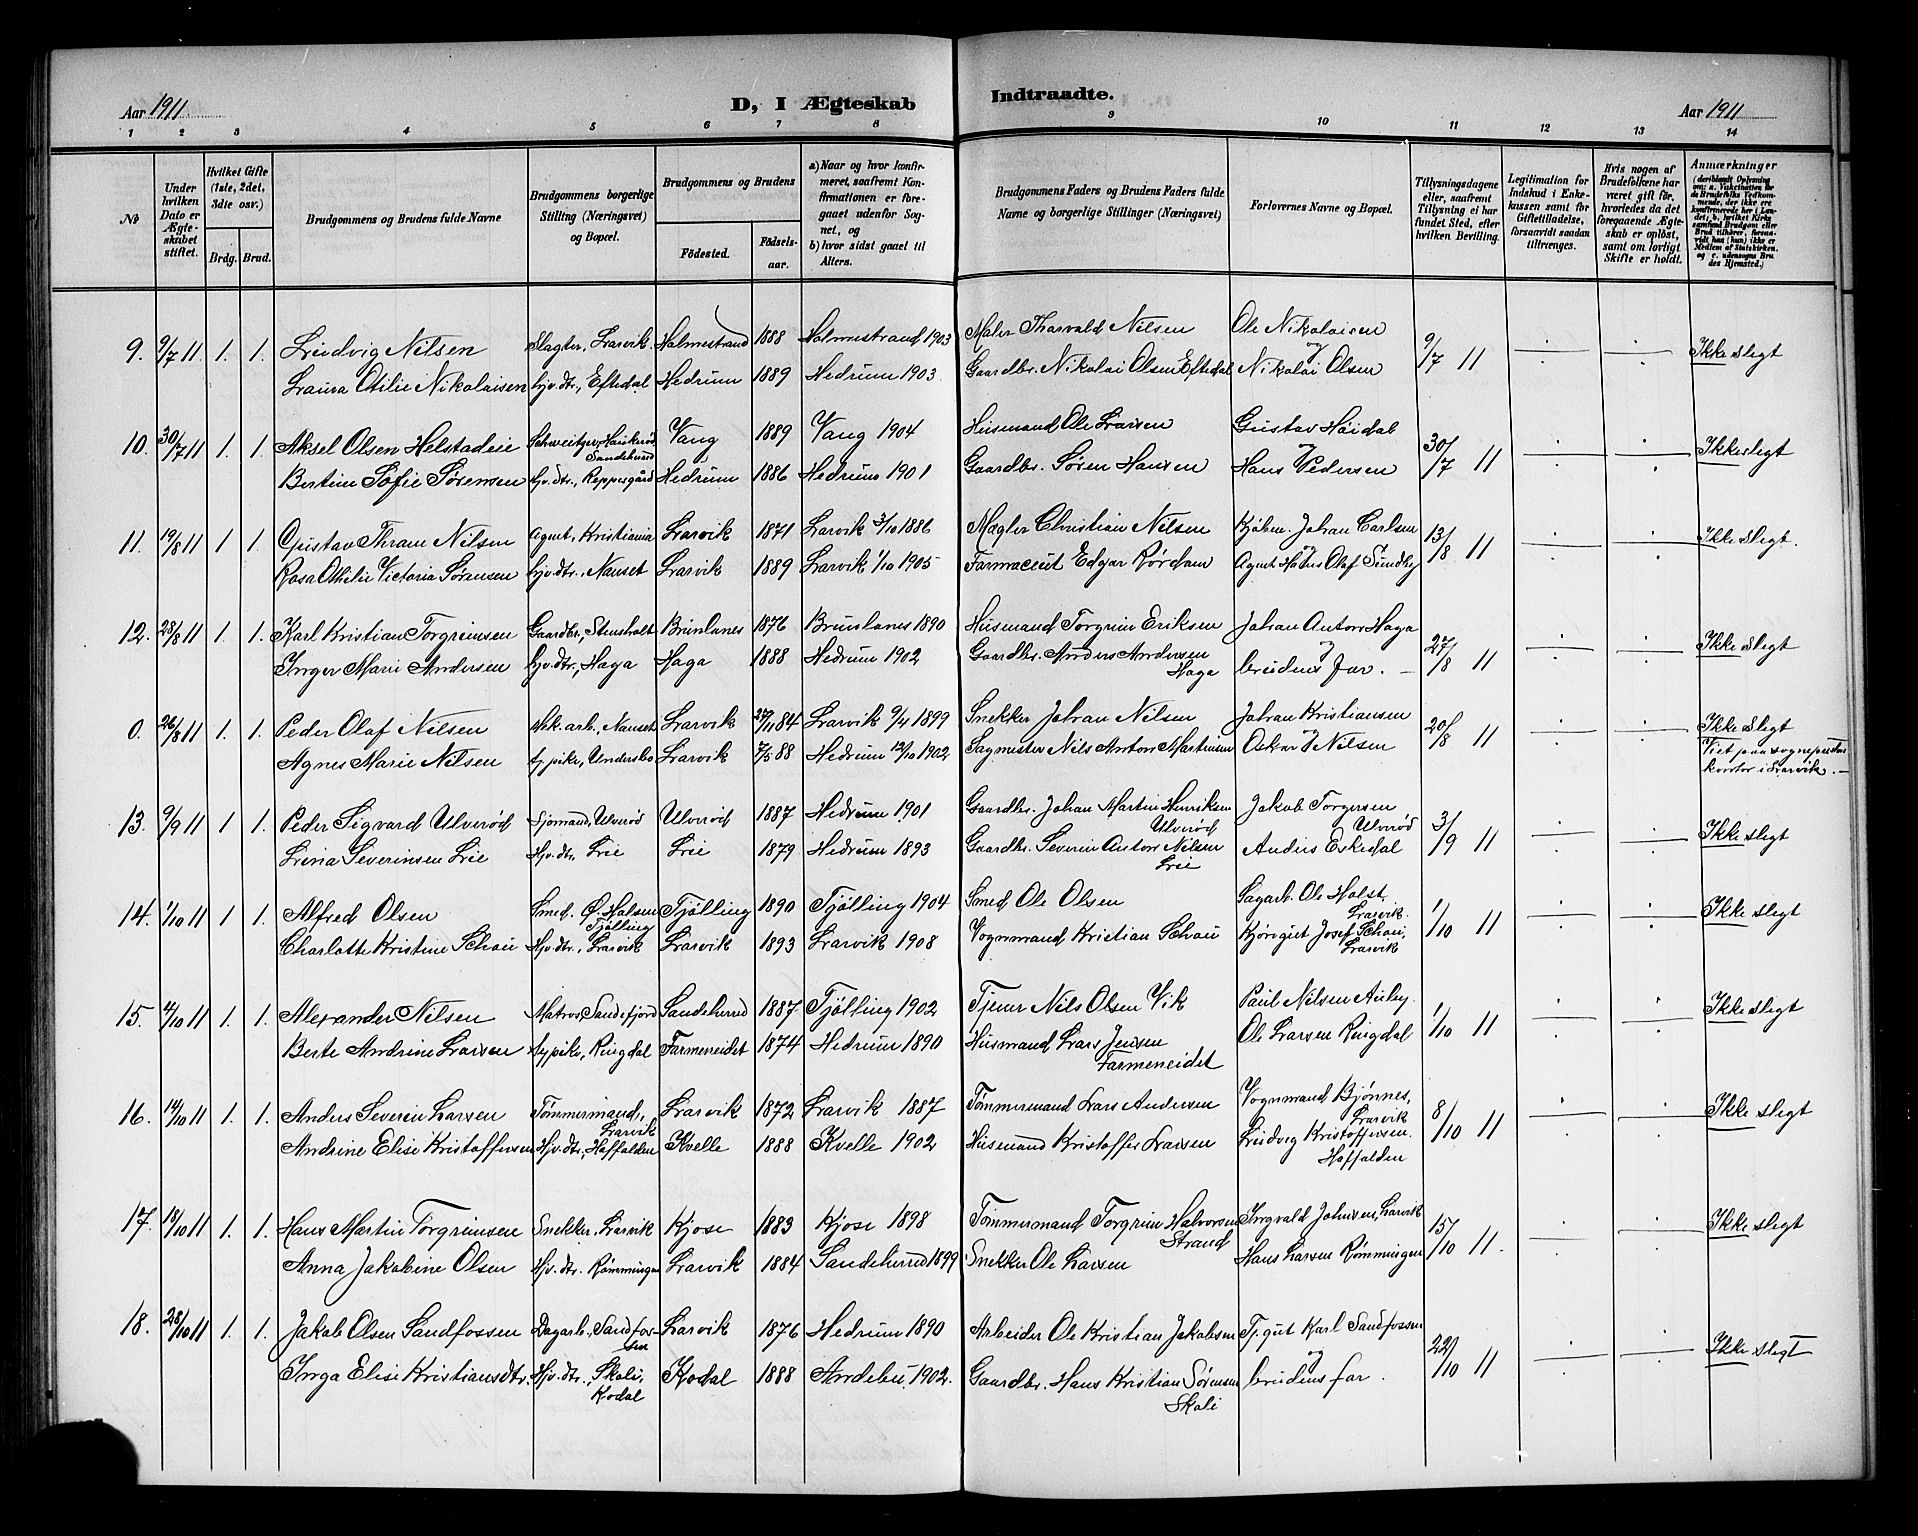 Aar 1911
D, I Ægteskab Indtraadte.
Aar 1911
1 2 3 4 5 6 7 8 9 10 11 12 13 14
No
Under hvilken Dato er Ægteskabet stiftet.
Hvilket Gifte (1ste, 2det, 3die osv.)
Brdg. Brud.
Brudgommens og Brudens fulde Navne
Brudgommens borgerlige Stilling (Næringsvei) og Bopæl.
Brudgommens og Brudens
Fødested. Fødselsaar.
a) Naar og hvor konfirmeret, saafremt Konfirmationen er foregaaet udenfor Sognet, og
b) hvor sidst gaaet til Alters.
Brudgommens Faders og Brudens Faders fulde Navne og borgerlige Stillinger (Næringsvei)
Forlovernes Navne og Bopæl.
Tillysningsdagene eller, saafremt Tillysning ei har fundet Sted, efter hvilken Bevilling.
Legitimation for Indskud i Enkekassen samt for Giftetilladelse, forsaavidt saadan tiltrænges.
Hvis nogen af Brudefolkene har været gift før, hvorledes da det foregaaende Ægteskab er opløst, samt om lovligt Skifte er holdt.
Anmærkninger (deriblandt Oplysning om: a. Vakcination for de Brudefolks Vedkommende, der ikke ere konfirmerede her i Landet, b. hvilket Kirkesamfund Brudgom eller Brud tilhører, forsaavidt han (hun) ikke er Medlem af Statskirken, og c. udensogns Brudes Hjemsted.
9. 9/7 11 1. 1. Ludvig Nilsen Slagter, Larvik Holmestrand 1888 Holmestrand 1903 Maler Tharvald Nilsen Ole Nikolaisen 9/7 11 Ikke slegt
Laura Otilie Nikolaisen hjv.dtr., Eftedal Hedrum 1889 Hedrum 1903. Gaardbr. Nikolai Olsen Eftedal og Nikolai Olsen
10. 30/7 11 1. 1. Aksel Olsen Helstadeie Schweitzer, Sandeherred Vang 1889 Vang 1904 Husmand Ole Larsen Gustav Høidal 30/7 11 Ikke slegt
Bertine Sofie Sørensen hjv.dtr., Reppesgård Hedrum 1886 Hedrum 1901 Gaardbr. Søren Hansen og Hans Pedersen
11. 19/8 11 1 1. Gustav Thrane Nilsen Agent, Kristiania Larvik 1871 Larvik 3/10 1886 Mægler Christian Nilsen Kjøbm. Johan Carlsen 13/8 11 Ikke slegt.
Rosa Othilie Victoria Sørensen hjv.dtr., Nanset Larvik 1889 Larvik 1/10 1905 Farmaceut Edgar Rørdam og Agent Hans Olaf Sundby
12. 28/8 11 1 1. Karl Kristian Torgrimsen Gaardbr., Stensholt Brunlanes 1876 Brunlanes 1890 Husmand Torgrim Eriksen Johan Anton Haga 27/8 11 Ikke slegt
Inger Marie Andersen hjv.dtr., Haga Haga 1888 Hedrum 1902 Gaardbr. Anders Andersen Haga og brudens far. —
0. 26/8 11 1. 1. Peder Olaf Nilsen Mek. arb., Nanset Larvik 27/11 84 Larvik 9/4 1899 Snekker Johan Nilsen Johan Kristiansen 20/8 11 Ikke slegt
Agnes Marie Nilsen tj.pike, Undersbo Larvik 7/5 88 Hedrum 12/10 1902 Sagmester Nils Anton Martinsen Oskar Nilsen Viet paa sogneprestens kontor i Larvik. —
13. 9/9 11 1 1. Peder Sigvard Ulverød Sjømand, Ulverød Ulverød 1887 Hedrum 1901 Gaardbr. Johan Martin Henriksen Ulverød Jakob Torgersen Ulverød 3/9 11 Ikke slegt
Lina Severinsen Lie Hjv.dtr. Lie Lie 1879 Hedrum 1893 Gaardbr. Severin Anton Nilsen Lie Anders Eskedal
14. 1/10 11 1 1. Alfred Olsen Smed. Ø. Halsen Tjølling Tjølling 1890 Tjølling 1904 Smed Ole Olsen Sagarb. Ole Holst, Larvik. 1/10 11 Ikke slegt
Charlotte Kristine Schou Hjv.dtr., Larvik Larvik 1893 Larvik 1908 Vognmand Kristian Schou Kjøregut Josef Schou, Larvik
15. 4/10 11 1. 1. Alexander Nilsen Matros, Sandefjord Sandeherred 1887 Tjølling 1902 Tjener Nils Olsen Vik Paul Nilsen Auby 1/10 11 Ikke slegt
Berte Andrine Larsen tj.pike, Ringdal Farmeneidet 1874 Hedrum 1890 Husmand Lars Jensen Farmeneidet Ole Larsen Ringdal
16. 14/10 11 1. 1. Anders Severin Larsen Tømmermand, Larvik Larvik 1872 Larvik 1887 Tømmermand Lars Andersen Vognmand Bjønnes, Larvik 8/10 11 Ikke slegt
Andrine Elise Kristoffersen Hjv.dtr., Haffalden Kvelle 1888 Kvelle 1902 Husmand Kristoffer Larsen Ludvig Kristoffersen. Haffalden
17. 18/10 11 1. 1. Hans Martin Torgrimsen Snekker, Larvik Kjose 1883 Kjose 1898 Tømmermand Torgrim Halvorsen Strand Ingvald Johnsen, Larvik 15/10 11. Ikke slegt
Anna Jakobine Olsen Hjv.dtr. Rømmingen Larvik 1884 Sandeherred 1899 Snekker Ole Larsen Hans Larsen Rømmingen
18. 28/10 11 1. 1. Jakob Olsen Sandfossen Dagarb., Sandfossen Larvik 1876 Hedrum 1890 Arbeider Ole Kristian Jakobsen Tj.gut Karl Sandfossen 22/10 11 Ikke slegt
Inga Elise Kristiansdtr. Hjv.dtr., Skoli, Kodal Kodal 1888 Andebu 1902. Gaardbr. Hans Kristian Sørensen Skoli og brudens far.